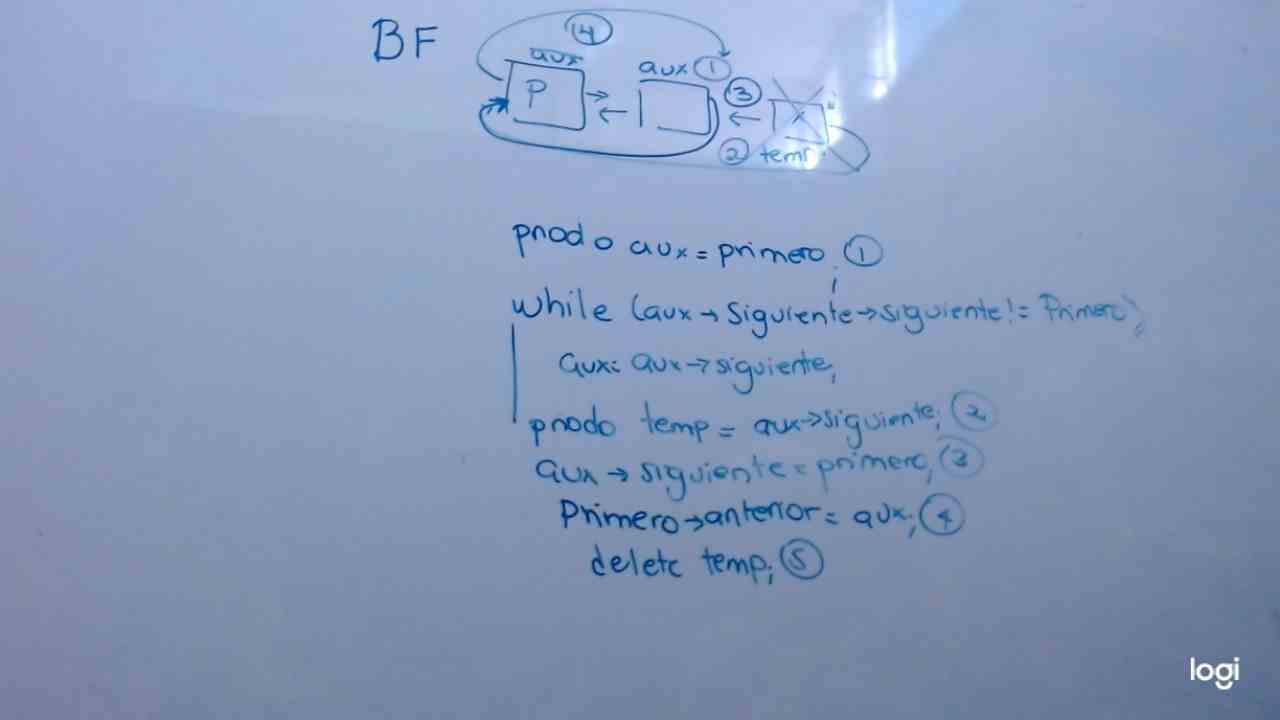 BF
④
aux
aux ①
P
③
② temp
pnodo aux = primero; ①
while (aux → Siguiente → siguiente != Primero)
aux = aux → siguiente;
pnodo temp = aux → siguiente; ②
aux → siguiente = primero; ③
Primero → anterior = aux; ④
delete temp; ⑤
logi